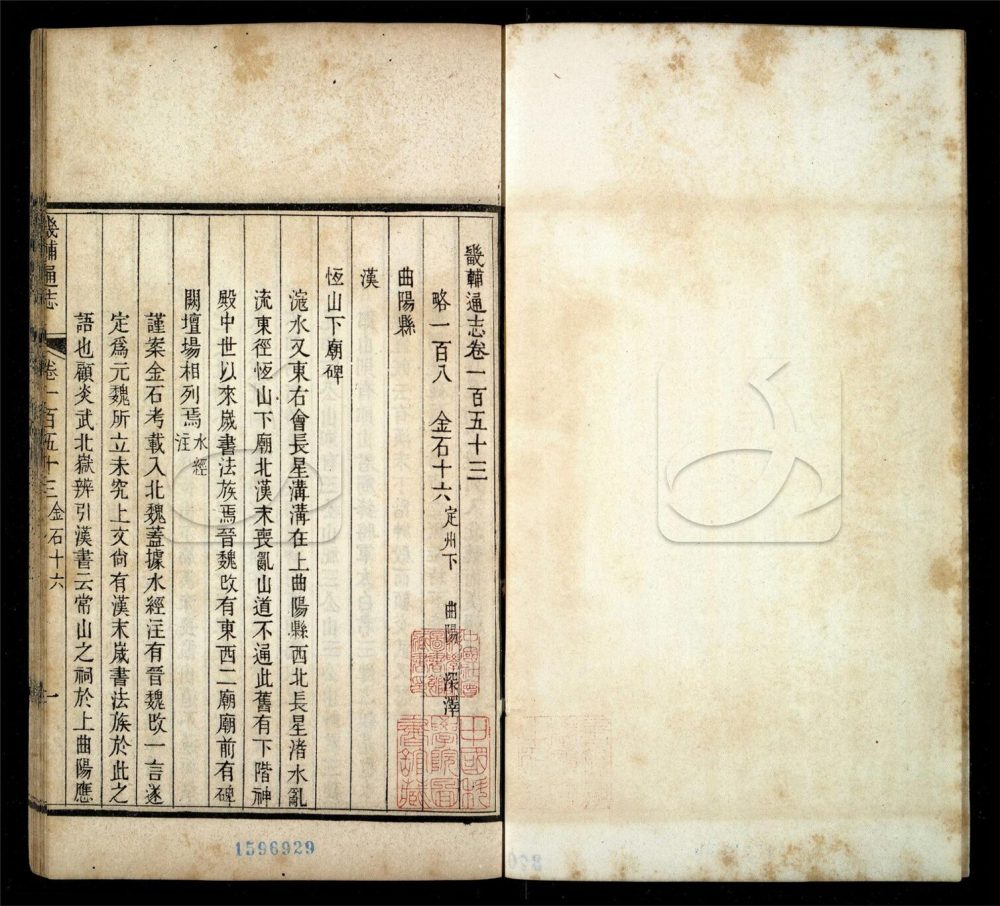 畿輔通志卷一百五十三
略一百八　金石十六 定州下　曲陽　深澤
曲陽縣
漢
恆山下廟碑
滱水又東右會長星溝溝在上曲陽縣西北長星渚水亂
流東徑恆山下廟北漢末喪亂山道不通此舊有下階神
殿中世以來歲書法族焉晉魏改有東西二廟廟前有碑
闕壇場相列焉 水經注
謹案金石考載入北魏蓋據水經注有晉魏改一言遂
定爲元魏所立未究上文尙有漢末歲書法族於此之
語也顧炎武北嶽辨引漢書云常山之祠於上曲陽應
畿輔通志
卷一百五十三 金石十六
一
中國科學院圖書館藏
1596929